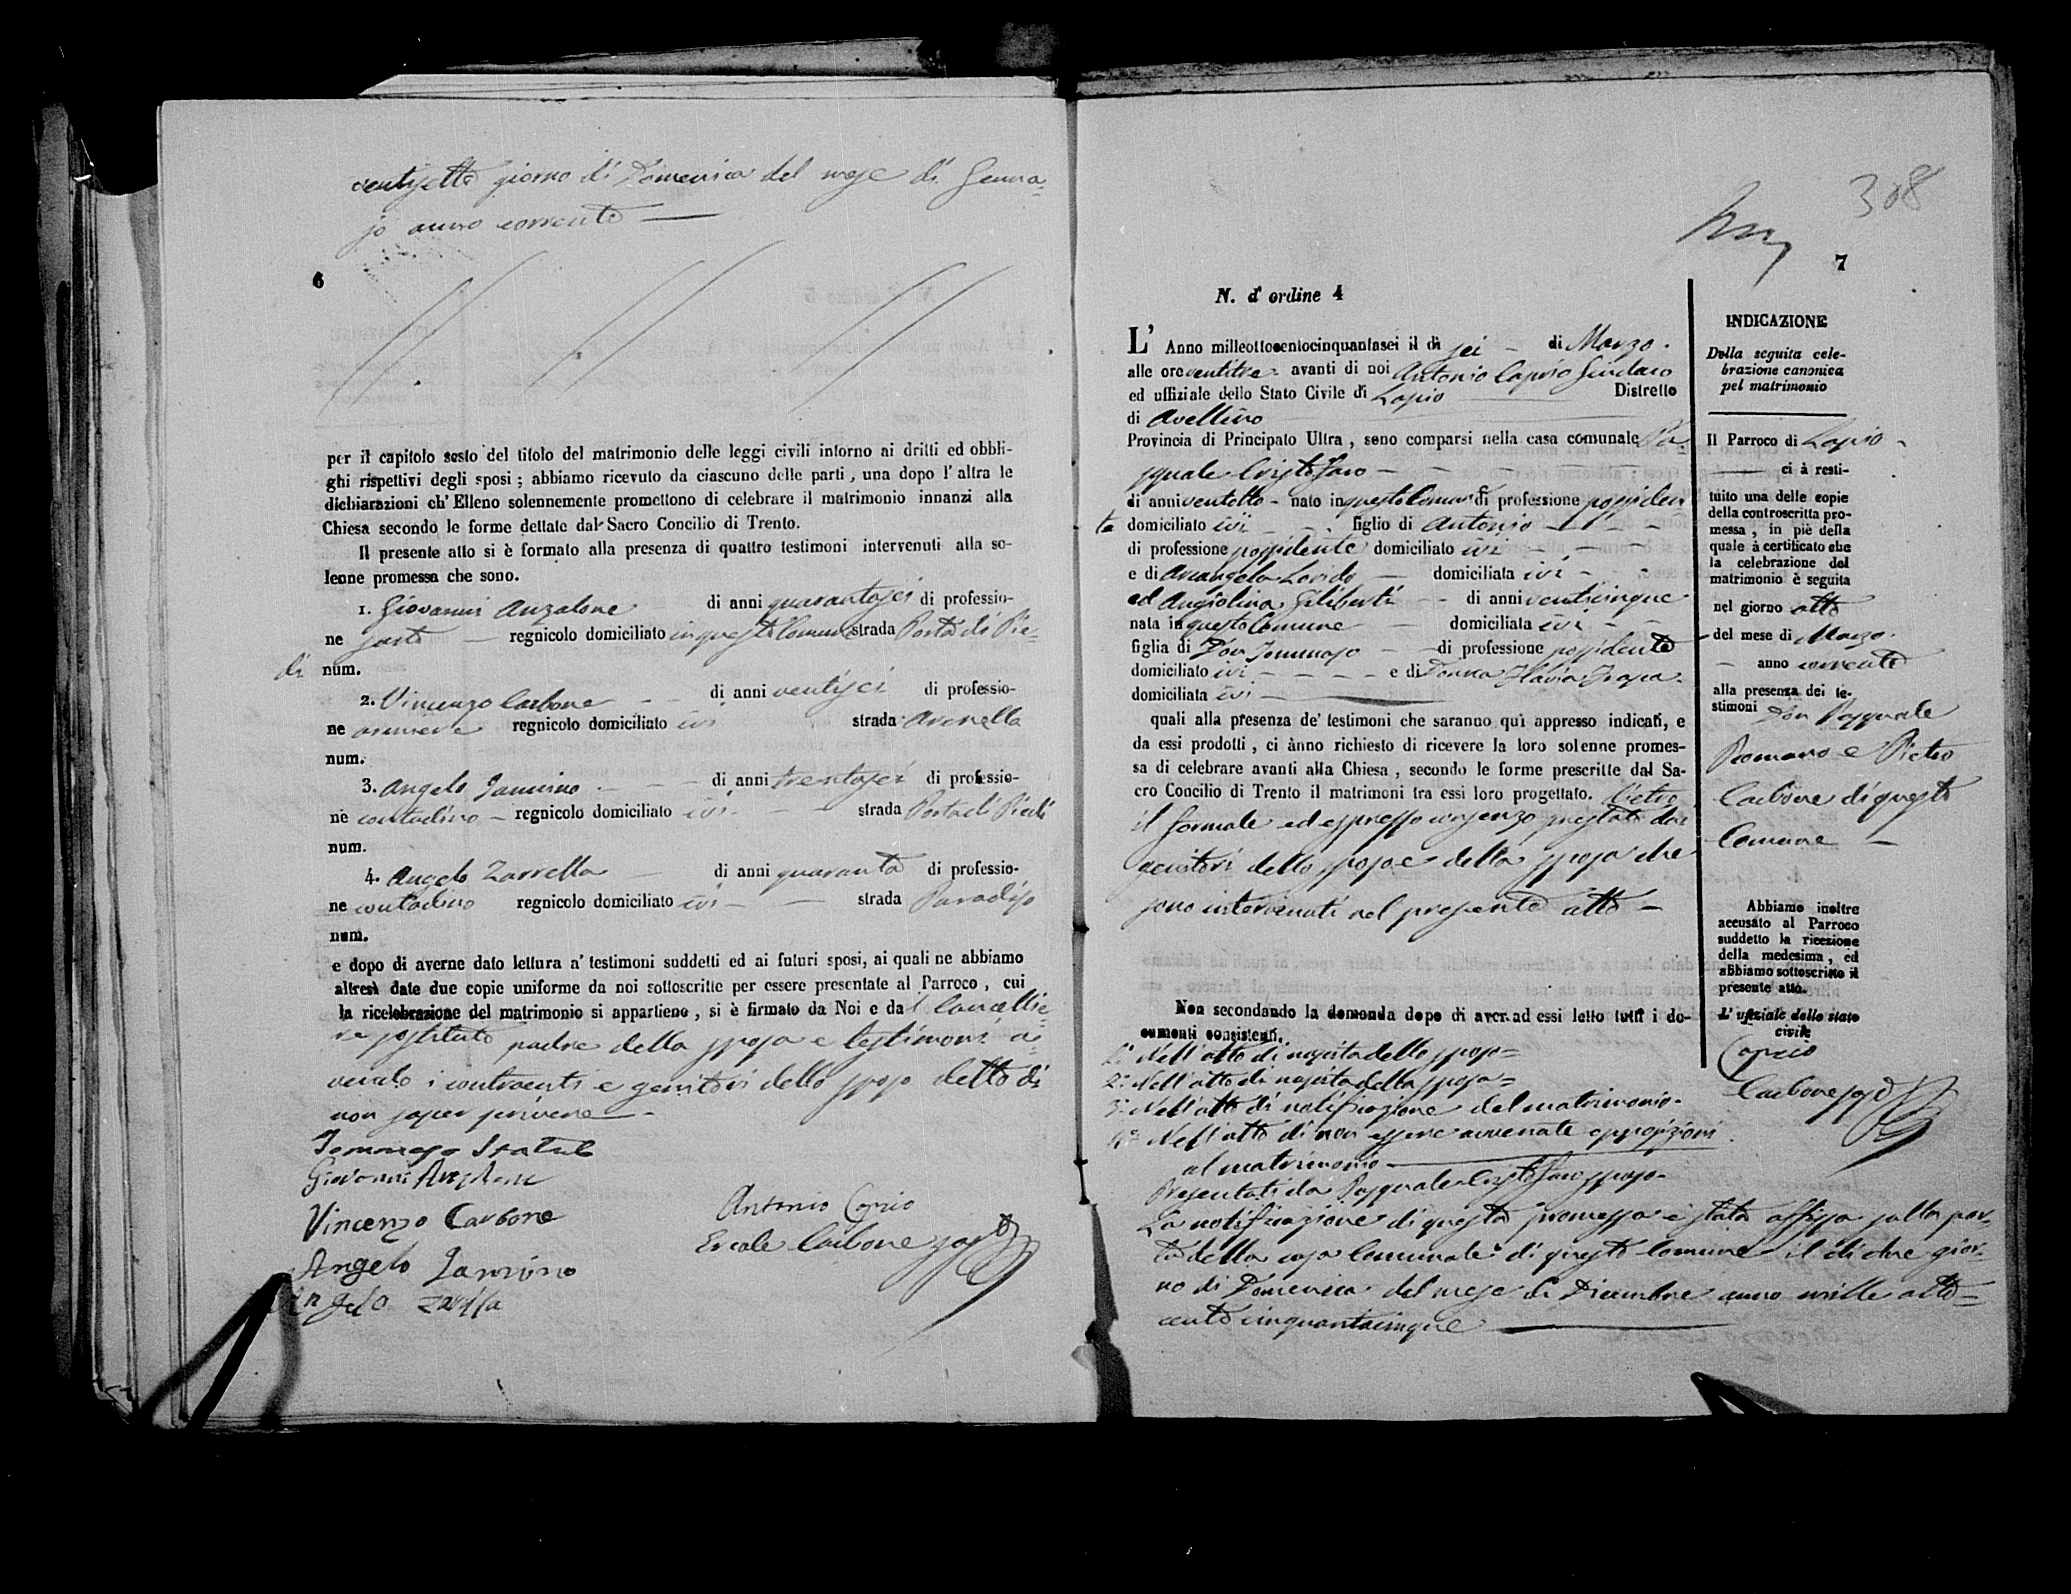 ventisette giorno di Domenica del mese di Genna=
jo anno corrente
6
per il capitolo sesto del titolo del matrimonio delle leggi civili intorno ai dritti ed obbli-
ghi rispettivi degli sposi ; abbiamo ricevuto da ciascuno delle parti , una dopo l' altra le
dichiarazioni ch' Elleno solennemente promettono di celebrare il matrimonio innanzi alla
Chiesa secondo le forme dettate dal Sacro Concilio di Trento.
Il presente atto si è formato alla presenza di quattro testimoni intervenuti alla so-
lenne promessa che sono.
1. Giovanni Anzalone di anni quarantasei di professio-
ne sarto regnicolo domiciliato in questo Comune strada Porta di Pie=
di num.
2. Vincenzo Carbone di anni ventisei di professio-
ne regnicolo domiciliato ivi strada Avenella
num.
3. Angelo Iannino di anni trentasei di professio-
ne contadino regnicolo domiciliato ivi strada Porta di Piedi
num.
4. Angelo Zarrella di anni quaranta di professio-
ne contadino regnicolo domiciliato ivi strada Paradiso
num.
e dopo di averne dato lettura a' testimoni suddetti ed ai futuri sposi, ai quali ne abbiamo
altresì date due copie uniforme da noi sottoscritte per essere presentate al Parroco , cui
la ricelebrazione del matrimonio si appartiene , si è firmato da Noi e dal Cancellie=
re sostituto padre della sposa e testimoni a=
vendo i contraenti e genitori dello sposo detto di
non saper scrivere
Tommaso
Giovanni Anzalone
Vincenzo Carbone
Antonio Caprio
Ercole Carbone sost
Angelo Iannino
Angelo Zarella
308
7
N. d' ordine 4
L' Anno milleottocentocinquantasei il dì sei di Marzo
alle ore ventitre avanti di noi Antonio Caprio Sindaco
ed uffiziale dello Stato Civile di Lapio Distretto
di Avellino
Provincia di Principato Ultra , sono comparsi nella casa comunale Pa=
squale Cristofaro
di anni ventotto nato in questo Comune di professione possiden
te domiciliato ivi figlio di Antonio
di professione possidente domiciliato ivi
e di Arcangela domiciliata ivi
ed Angiolina Giliberti di anni venticinque
nata in questo Comune domiciliata ivi
figlia di Don Tommaso di professione possidente
domiciliato ivi e di Donna Flavia
domiciliata ivi
quali alla presenza de' testimoni che saranno quì appresso indicati, e
da essi prodotti , ci ànno richiesto di ricevere la loro solenne promes-
sa di celebrare avanti alla Chiesa , secondo le forme prescritte dal Sa-
cro Concilio di Trento il matrimoni tra essi loro progettato. Dietro
il formale ed espresso consenzo prestato dai
genitori dello sposo e della sposa che
sono intervenuti nel presente atto
Non secondando la domanda dopo di aver ad essi letto tutti i do-
cumenti consistenti,
1.° Nell'atto di nascita dello sposo=
2.° Nell'atto di nascita della sposa=
3.° Nell'atto di notificazione del matrimonio=
4.° Nell'atto di non essere avvenute opposizioni
al matrimonio
Presentati da Pasquale Cristofaro sposo=
La notificazione di questa promessa è stata affissa sulla por=
ta della casa Comunale di questo Comune il dì due gior=
no di Domenica del mese di Dicembre anno mille otto=
cento cinquantacinque
INDICAZIONE
Della seguita cele-
brazione canonica
pel matrimonio
Il Parroco di Lapio
ci à resti-
tuito una delle copie
della controscritta pro-
messa , in piè della
quale à certificato che
la celebrazione del
matrimonio è seguita
nel giorno otto
del mese di Marzo
anno corrente
alla presenza dei te-
stimoni Don Pasquale
Romano e Pietro
Carbone di questo
Comune
Abbiamo inoltre
accusato al Parroco
suddetto la ricezione
della medesima , ed
abbiamo sottoscritto il
presente atto.
L' uffiziale dello stato
civile
Caprio
Carbone sost